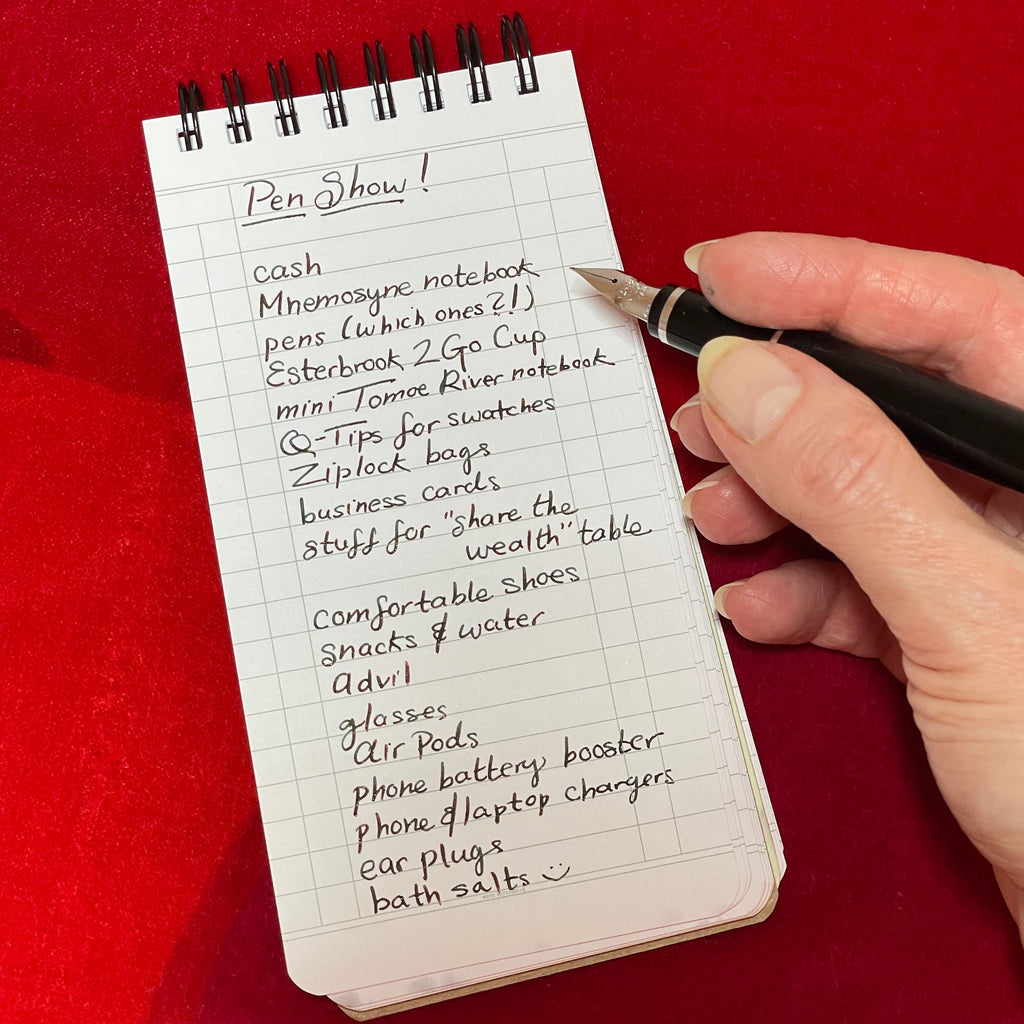 Pen Show!
cash
Mnemosyne notebook
pens (which ones?!)
Esterbrook 2 Go Cup
mini Tomoe River notebook
Q-Tips for swatches
Ziplock bags
business cards
stuff for "share the
wealth" table
comfortable shoes
snacks & water
advil
glasses
air Pods
phone battery booster
phone & laptop chargers
ear plugs
bath salts